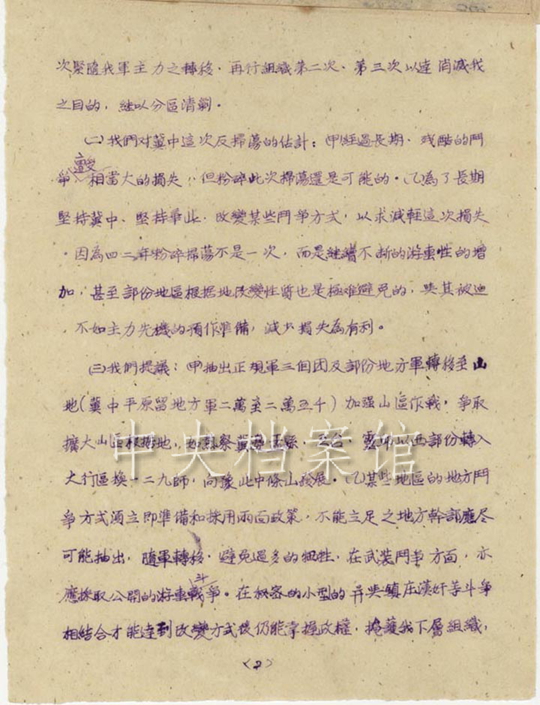 次緊隨我軍主力之轉移．再行組織第二次、第三次以達消滅我
之目的，繼以分區清剿。
(二)我們对冀中這次反掃蕩的估計：(甲)經過長期．殘酷的鬥
爭受相當大的損失，但粉碎此次掃蕩還是可能的。(乙)為了長期
堅持冀中、堅持華北．改變某些鬥爭方式，以求減輕這次損失
．因為四二年粉碎掃蕩不是一次，而是繼續不断的游的增
加，甚至部份地區根据地改變性質也是極难避免的，與其被迫
．不如主力先機的預作準備，減少損失為有利。
(三)我們提議：(甲)抽出正規軍三個团及部份地方軍轉移至山
地(冀中平原留地方軍二萬至二萬五千)加強山區作戰，爭取
擴大山區根據地，察以西部份轉入
太行區換一二九師，向豫北中條山發展。(乙)某些地區的地方鬥
爭方式須立即準備和採用兩面政策．不能立足之地方幹部應尽
可能抽出，隨軍轉移．避免过多的牺牲．在武裝鬥爭方面，亦
應採取公開的游爭。在秘密的小型的鎮庄漢奸等斗爭
相結合才能達到改變方式後仍能掌握政權，掩護我下層組織，
(2)
中央档案馆